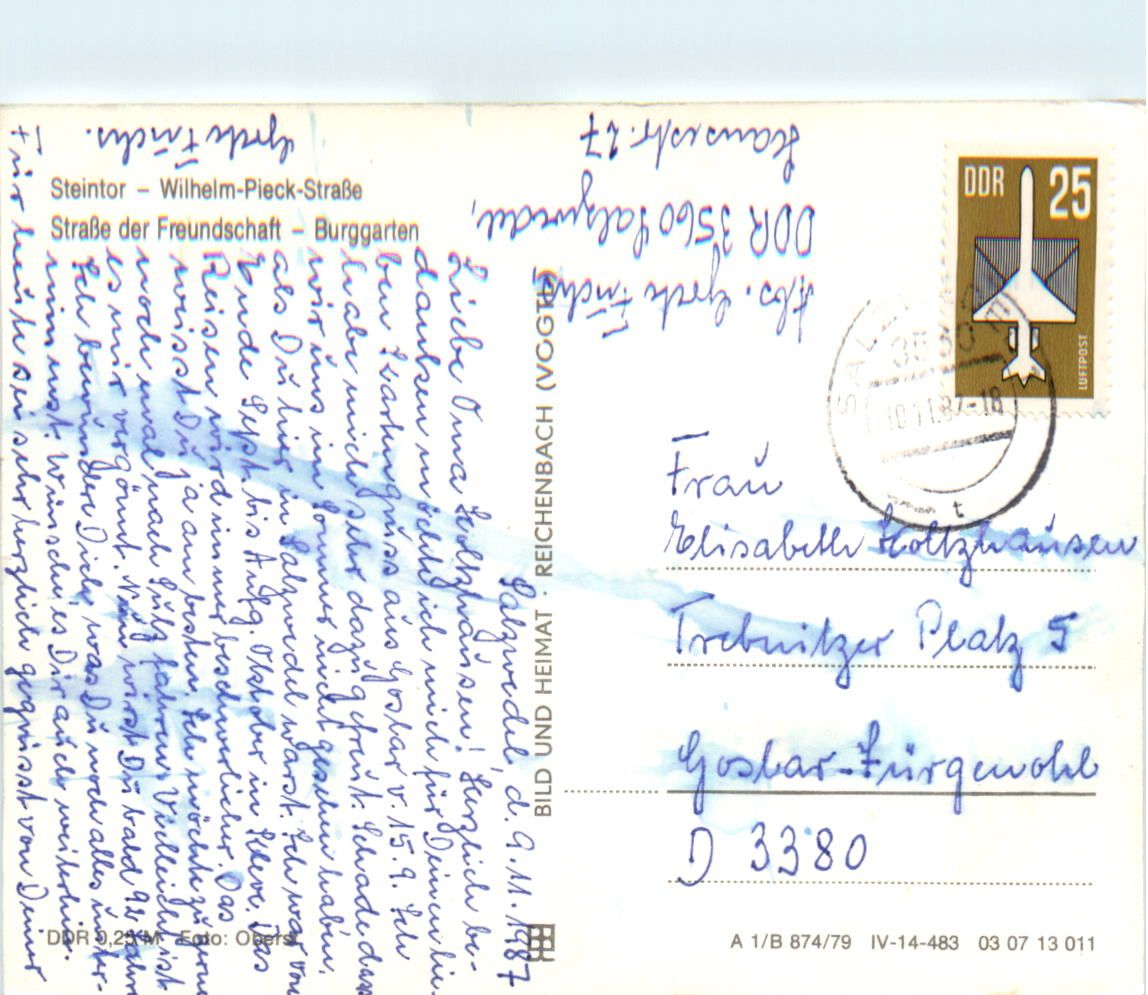 Steintor – Wilhelm-Pieck-Straße
Straße der Freundschaft – Burggarten
Salzwedel, d. 9.11.1987
Liebe Oma Holtzhausen! Herzlich be-
danken möcht ich mich für Deinen lie-
ben Kartengruss aus Goslar v. 15.9. Ich
habe mich sehr dazu gefreut. Schade dass
wir uns im Sommer nicht gesehen haben,
als Du hier in Salzwedel warst. Ich war von
Ende Sept. bis Anfg. Oktober in Kleve. Das
Reisen wird immer beschwerlicher. Das
weisst Du ja am besten. Ich möchte zu gern
noch mal nach Sulz fahren, vielleicht ist
es mir vergönnt. Nun wirst Du bald 92 Jahre
Ich bewundere Dich, was Du noch alles unter-
nimmst. Wünsche es Dir auch weiterhin.
Für heute sei sehr herzlich gegrüsst von Deiner
Grete Fuchs.
Abs. Grete Fuchs
DDR 3560 Salzwedel,
Hansestr. 27
BILD UND HEIMAT · REICHENBACH (VOGTL)
DDR 25
LUFTPOST
SALZ
3560
10.11.87-18
t
Frau
Elisabeth Holtzhausen
Trebnitzer Platz 5
Goslar-Jürgenohl
D 3380
DDR 0,25 M Foto: Oberst
A 1/B 874/79 IV-14-483 03 07 13 011